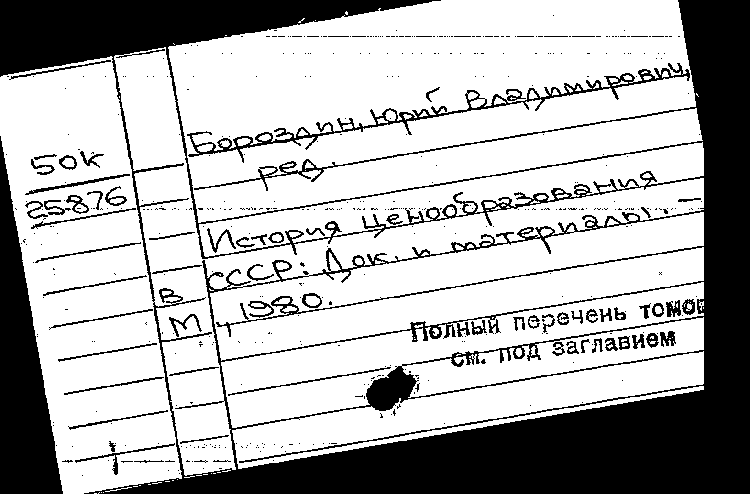 Бороздин, Юрий Владимирович,
50к
ред.
25876
История ценообразования
в СССР: Док. и материалы. –
М., 1980.
Полный перечень томов
см. под заглавием